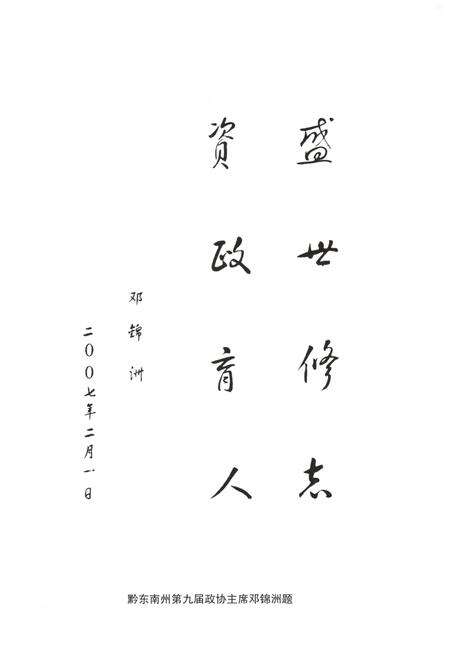 盛世修志
資政育人
邓锦洲
二〇〇七年二月一日
黔东南州第九届政协主席邓锦洲题